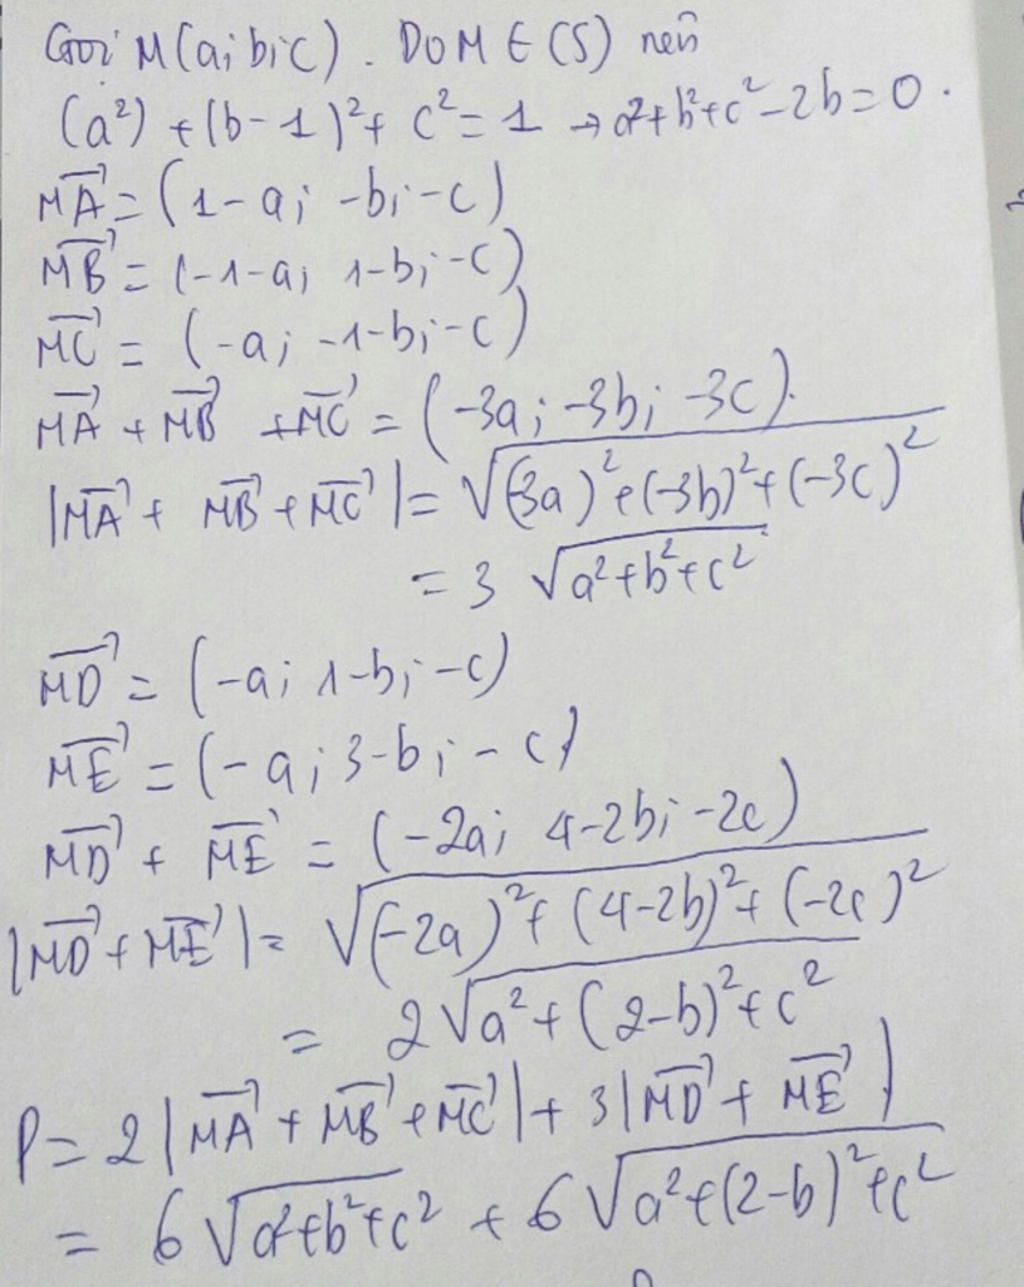 Gọi M(a; b; c). DO M ∈ (S) nên
(a²) + (b-1)² + c² = 1 → a²+b²+c²-2b=0.
$\overrightarrow{MA}$ = (1-a; -b; -c)
$\overrightarrow{MB}$ = (-1-a; 1-b; -c)
$\overrightarrow{MC}$ = (-a; -1-b; -c)
$\overrightarrow{MA}$ + $\overrightarrow{MB}$ + $\overrightarrow{MC}$ = (-3a; -3b; -3c).
|$\overrightarrow{MA}$ + $\overrightarrow{MB}$ + $\overrightarrow{MC}$| = $\sqrt{(-3a)^2+(-3b)^2+(-3c)^2}$
= 3 $\sqrt{a^2+b^2+c^2}$
$\overrightarrow{MD}$ = (-a; 1-b; -c)
$\overrightarrow{ME}$ = (-a; 3-b; -c)
$\overrightarrow{MD}$ + $\overrightarrow{ME}$ = (-2a; 4-2b; -2c)
|$\overrightarrow{MD}$ + $\overrightarrow{ME}$| = $\sqrt{(-2a)^2+(4-2b)^2+(-2c)^2}$
= 2 $\sqrt{a^2+(2-b)^2+c^2}$
P = 2|$\overrightarrow{MA}$ + $\overrightarrow{MB}$ + $\overrightarrow{MC}$| + 3|$\overrightarrow{MD}$ + $\overrightarrow{ME}$|
= 6 $\sqrt{a^2+b^2+c^2}$ + 6 $\sqrt{a^2+(2-b)^2+c^2}$